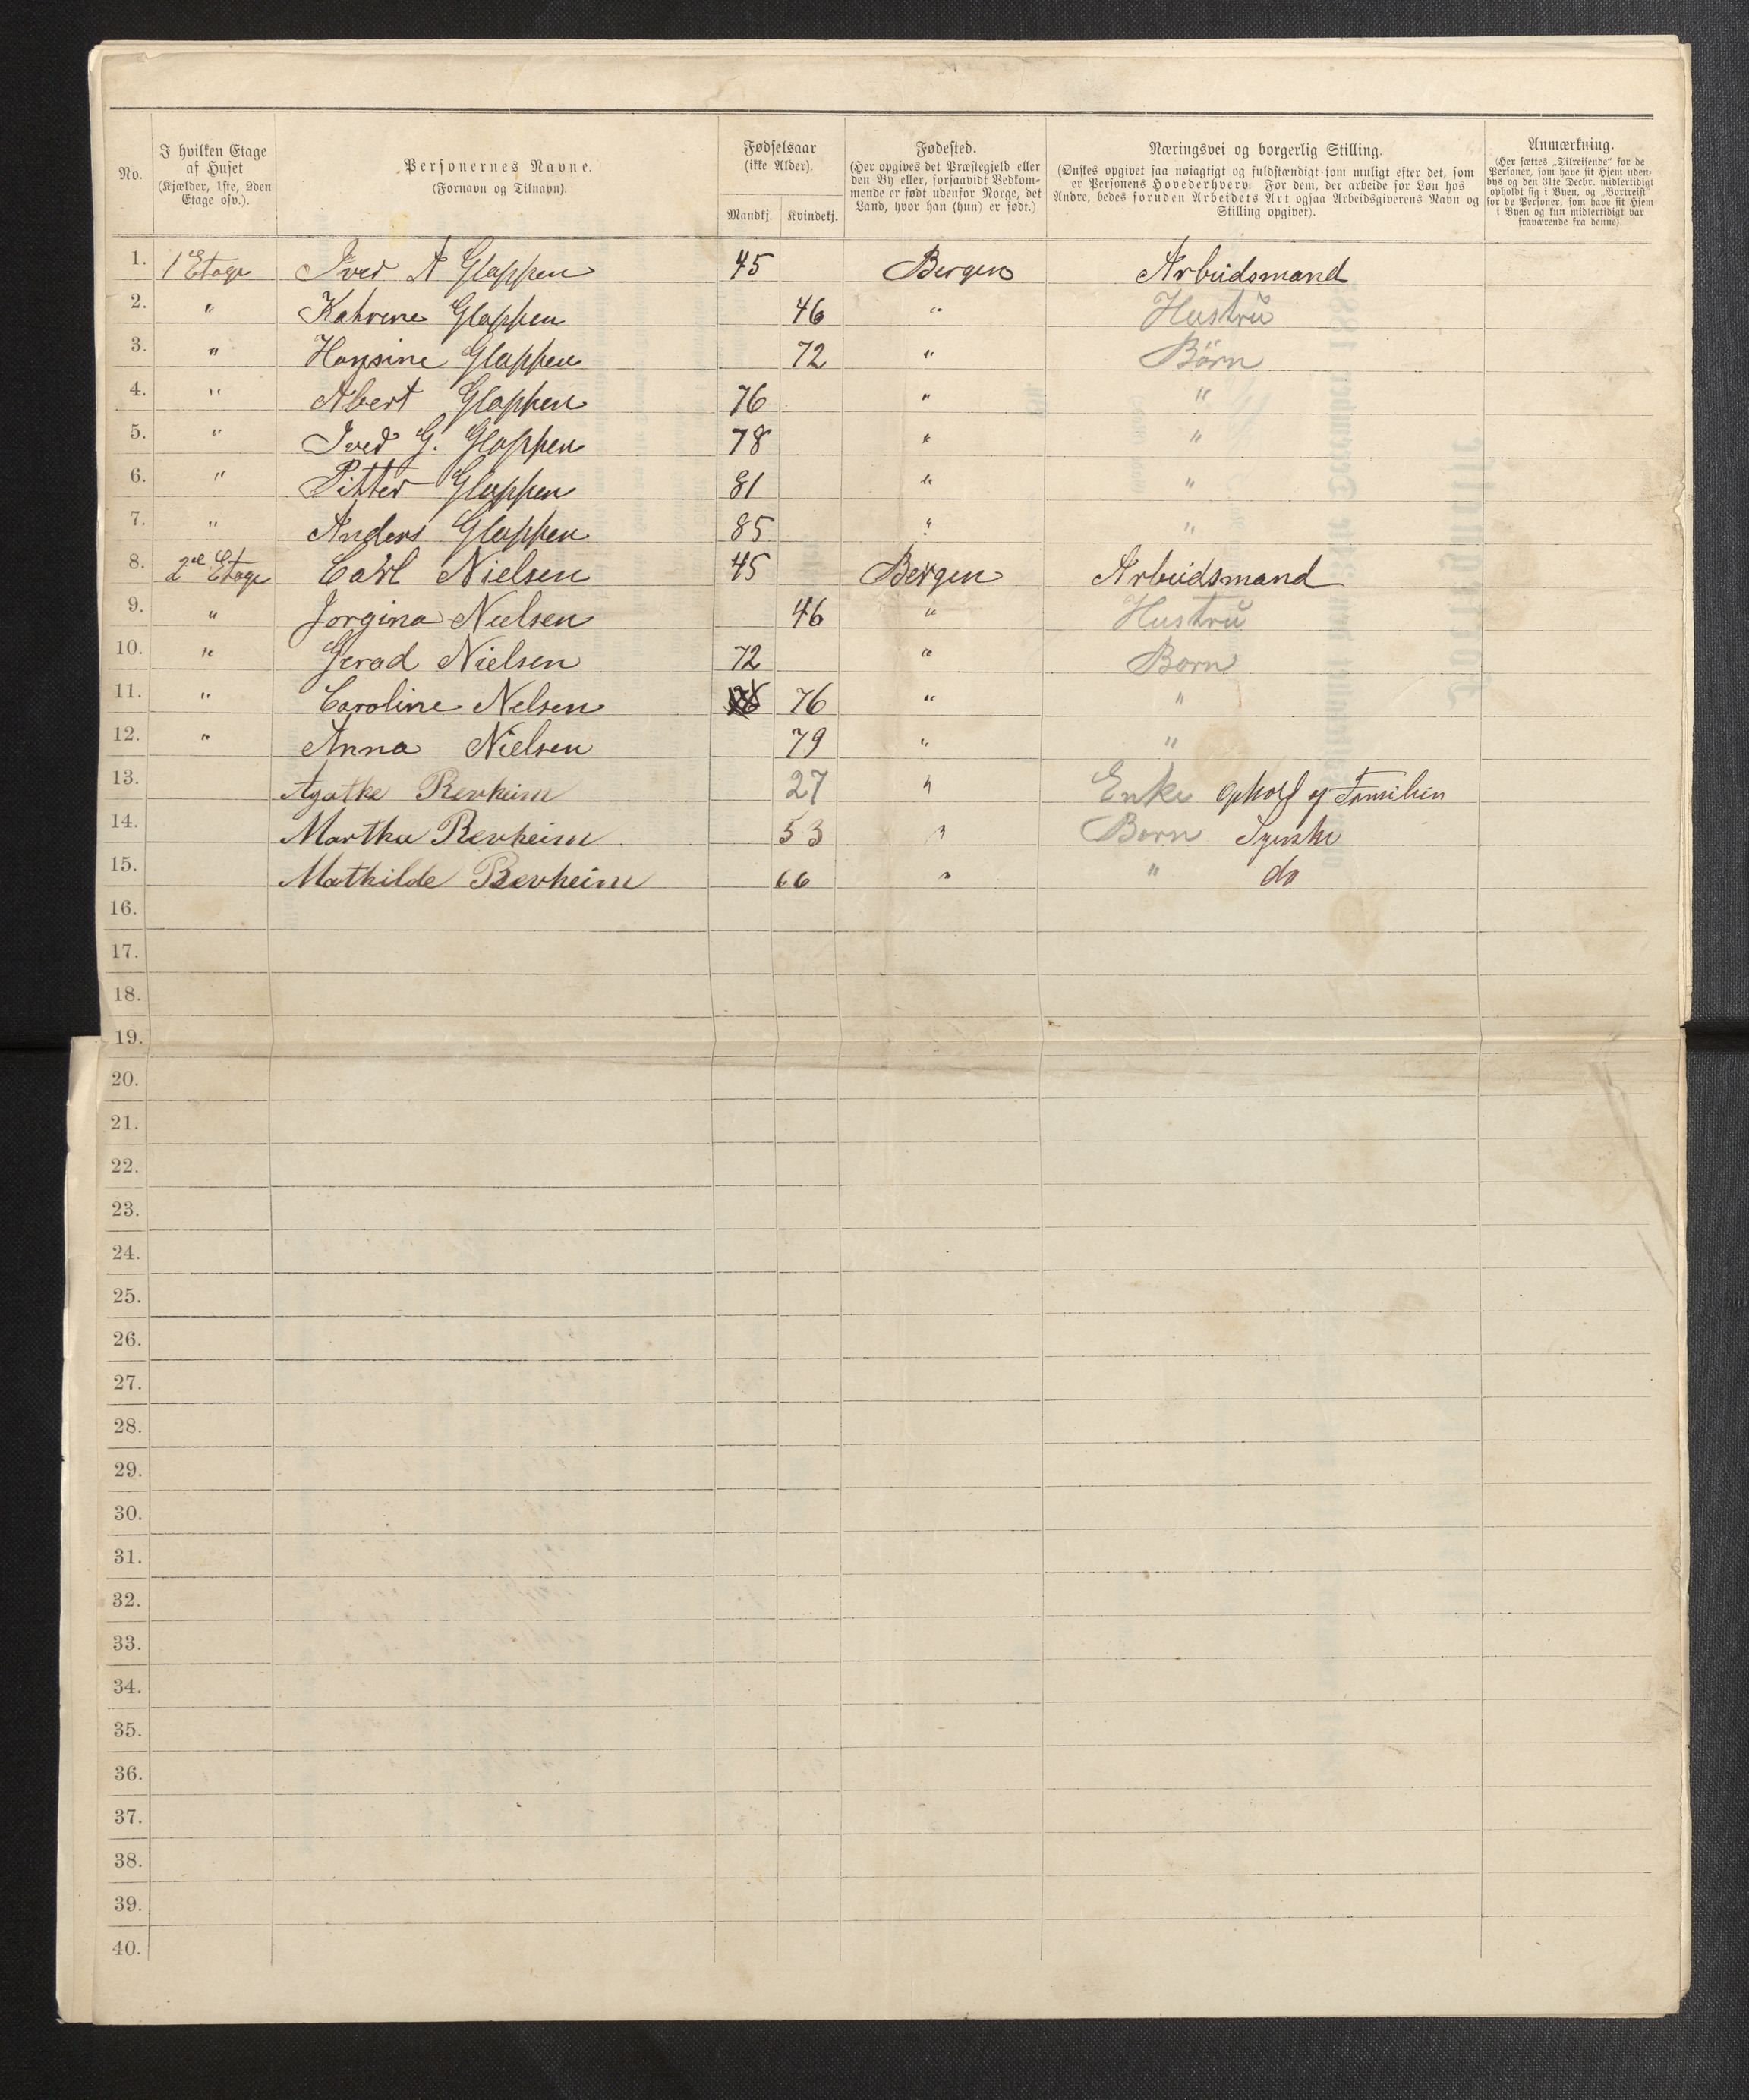 No.
I hvilken Etage af Huset (Kjælder, 1ste, 2den Etage osv.).
Personernes Navne. (Fornavn og Tilnavn).
Fødselsaar (ikke Alder).
Mandkj. Kvindekj.
Fødested. (Her opgives det Præstegjeld eller den By eller, forsaavidt Vedkommende er født udenfor Norge, det Land, hvor han (hun) er født.)
Næringsvei og borgerlig Stilling. (Ønskes opgivet saa nøiagtigt og fuldstændigt som muligt efter det, som er Personens Hovederhverv. For dem, der arbeide for Løn hos Andre, bedes foruden Arbeidets Art ogsaa Arbeidsgiverens Navn og Stilling opgivet).
Anmærkning. (Her sættes „Tilreisende" for de Personer, som have sit Hjem udenbys og den 31te Decbr. midlertidigt opholdt sig i Byen, og „Bortreist" for de Personer, som have sit Hjem i Byen og kun midlertidigt var fraværende fra denne).
1. 1 Etage Iver A Gloppen 45 Bergen Arbeidsmand
2. " Kahrene Gloppen 46 " Hustru
3. " Hansine Gloppen 72 " Børn
4. " Albert Gloppen 76 " "
5. " Iver G. Gloppen 78 " "
6. " Pitter Gloppen 81 " "
7. " Anders Gloppen 85 " "
8. 2 Etage Carl Nielsen 45 Bergen Arbeidsmand
9. " Jorgina Nielsen 46 " Hustru
10. " Gerad Nielsen 72 " Born
11. " Caroline Nelsen 76 " "
12. " Anna Nielsen 79 " "
13. Agathe Revheim 27 " Enke Ophold af Familien
14. Martha Revheim 53 " Born Syerske
15. Mathilde Revheim 66 " " do
16.
17.
18.
19.
20.
21.
22.
23.
24.
25.
26.
27.
28.
29.
30.
31.
32.
33.
34.
35.
36.
37.
38.
39.
40.